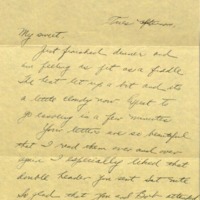 Tues afternoon,
My sweet,
Just finished dinner and
is feeling as fit as a fiddle.
The heat let up a bit and its
a little cloudy now. Expect to
go bowling in a few minutes.
Your letters are so beautiful
that I read them over and over
again. I especially liked that
double header you sent
So glad that you and attended